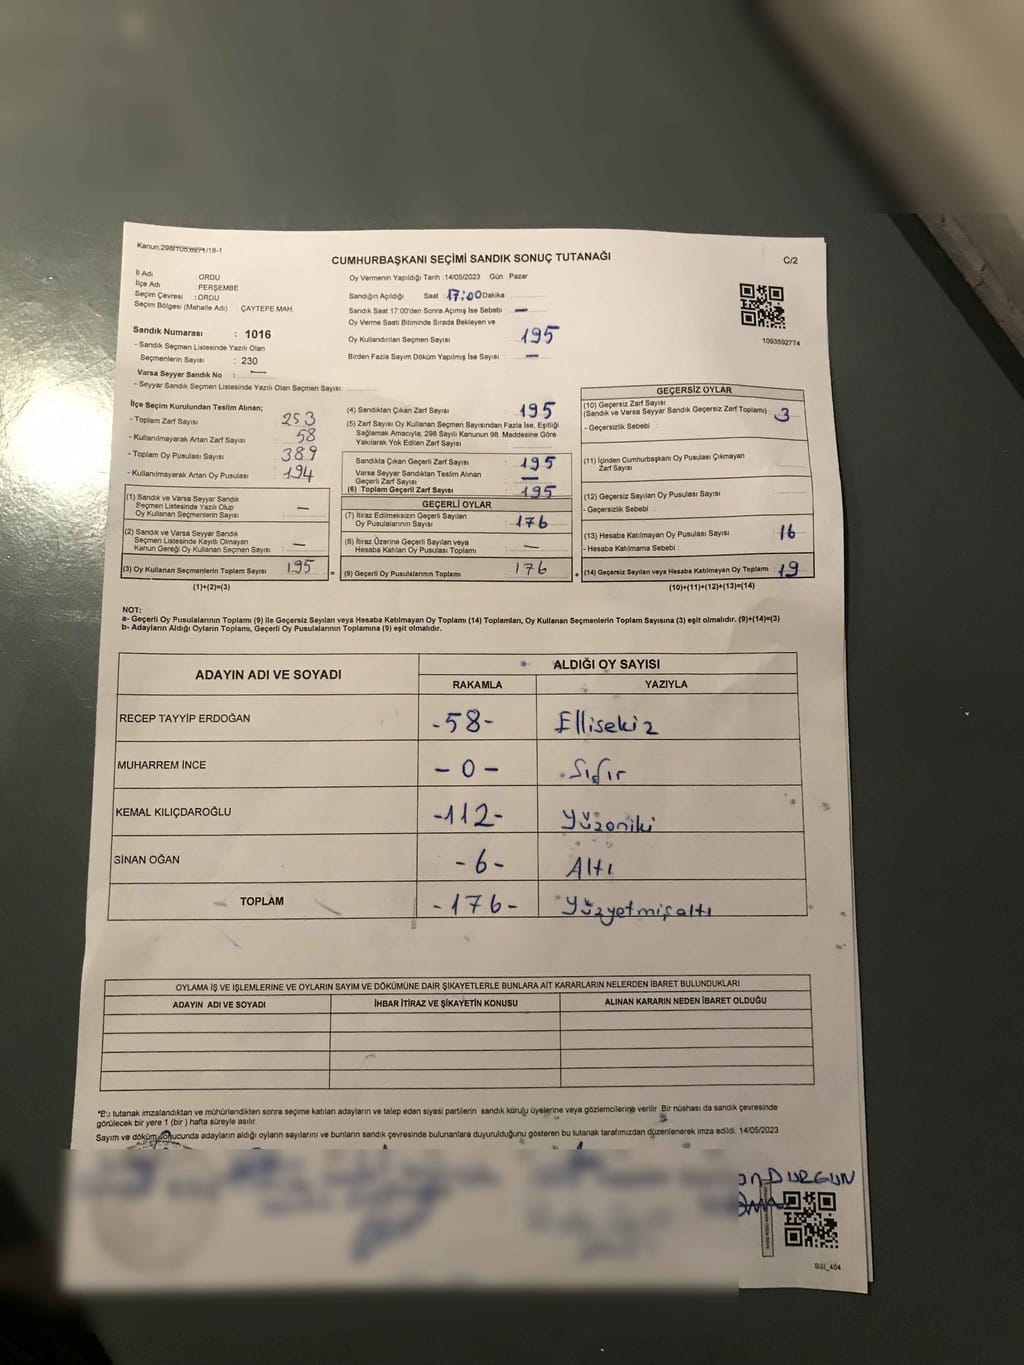 Kanun;298/105,6271/18-1
CUMHURBAŞKANI SEÇİMİ SANDIK SONUÇ TUTANAĞI
C/2
İl Adı ORDU
İlçe Adı PERŞEMBE
Seçim Çevresi : ORDU
Seçim Bölgesi (Mahalle Adı) : ÇAYTEPE MAH.
Sandık Numarası : 1016
- Sandık Seçmen Listesinde Yazılı Olan
Seçmenlerin Sayısı : 230
Varsa Seyyar Sandık No : —
- Seyyar Sandık Seçmen Listesinde Yazılı Olan Seçmen Sayısı:
Oy Vermenin Yapıldığı Tarih :14/05/2023 Gün : Pazar
Sandığın Açıldığı Saat 17:00 Dakika
Sandık Saat 17:00'den Sonra Açımış İse Sebebi : —
Oy Verme Saati Bitiminde Sırada Bekleyen ve
Oy Kullandırılan Seçmen Sayısı : 195
Birden Fazla Sayım Döküm Yapılmış İse Sayısı : —
1093592774
İlçe Seçim Kurulundan Teslim Alınan;
- Toplam Zarf Sayısı : 253
- Kullanılmayarak Artan Zarf Sayısı : 58
- Toplam Oy Pusulası Sayısı : 389
- Kullanılmayarak Artan Oy Pusulası : 194
(1) Sandık ve Varsa Seyyar Sandık
Seçmen Listesinde Yazılı Olup
Oy Kullanan Seçmenlerin Sayısı : —
(2) Sandık ve Varsa Seyyar Sandık
Seçmen Listesinde Kayıtlı Olmayan
Kanun Gereği Oy Kullanan Seçmen Sayısı : —
(3) Oy Kullanan Seçmenlerin Toplam Sayısı : 195
(1)+(2)=(3)
(4) Sandıktan Çıkan Zarf Sayısı : 195
(5) Zarf Sayısı Oy Kullanan Seçmen Sayısından Fazla İse, Eşitliği
Sağlamak Amacıyla; 298 Sayılı Kanunun 98. Maddesine Göre
Yakılarak Yok Edilen Zarf Sayısı :
Sandıkta Çıkan Geçerli Zarf Sayısı : 195
Varsa Seyyar Sandıktan Teslim Alınan
Geçerli Zarf Sayısı : —
(6) Toplam Geçerli Zarf Sayısı : 195
GEÇERLİ OYLAR
(7) İtiraz Edilmeksizin Geçerli Sayılan
Oy Pusulalarının Sayısı : 176
(8) İtiraz Üzerine Geçerli Sayılan veya
Hesaba Katılan Oy Pusulası Toplamı : —
= (9) Geçerli Oy Pusulalarının Toplamı : 176
GEÇERSİZ OYLAR
(10) Geçersiz Zarf Sayısı
(Sandık ve Varsa Seyyar Sandık Geçersiz Zarf Toplamı) : 3
- Geçersizlik Sebebi :
(11) İçinden Cumhurbaşkanı Oy Pusulası Çıkmayan
Zarf Sayısı :
(12) Geçersiz Sayılan Oy Pusulası Sayısı :
- Geçersizlik Sebebi :
(13) Hesaba Katılmayan Oy Pusulası Sayısı : 16
- Hesaba Katılmama Sebebi :
+ (14) Geçersiz Sayılan veya Hesaba Katılmayan Oy Toplamı : 19
(10)+(11)+(12)+(13)=(14)
NOT:
a- Geçerli Oy Pusulalarının Toplamı (9) ile Geçersiz Sayılan veya Hesaba Katılmayan Oy Toplamı (14) Toplamları, Oy Kullanan Seçmenlerin Toplam Sayısına (3) eşit olmalıdır. (9)+(14)=(3)
b- Adayların Aldığı Oyların Toplamı, Geçerli Oy Pusulalarının Toplamına (9) eşit olmalıdır.
ADAYIN ADI VE SOYADI ALDIĞI OY SAYISI
RAKAMLA YAZIYLA
RECEP TAYYİP ERDOĞAN -58- Ellisekiz
MUHARREM İNCE -0- Sıfır
KEMAL KILIÇDAROĞLU -112- Yüzoniki
SİNAN OĞAN -6- Altı
TOPLAM -176- Yüzyetmişaltı
OYLAMA İŞ VE İŞLEMLERİNE VE OYLARIN SAYIM VE DÖKÜMÜNE DAİR ŞİKAYETLERLE BUNLARA AİT KARARLARIN NELERDEN İBARET BULUNDUKLARI
ADAYIN ADI VE SOYADI İHBAR İTİRAZ VE ŞİKAYETİN KONUSU ALINAN KARARIN NEDEN İBARET OLDUĞU
*Bu tutanak imzalandıktan ve mühürlendikten sonra seçime katılan adayların ve talep eden siyasi partilerin sandık kurulu üyelerine veya gözlemcilerine verilir. Bir nüshası da sandık çevresinde
görülecek bir yere 1 (bir ) hafta süreyle asılır.
Sayım ve döküm sonucunda adayların aldığı oyların sayılarını ve bunların sandık çevresinde bulunanlara duyurulduğunu gösteren bu tutanak tarafımızdan düzenlenerek imza edildi. 14/05/2023
DURGUN